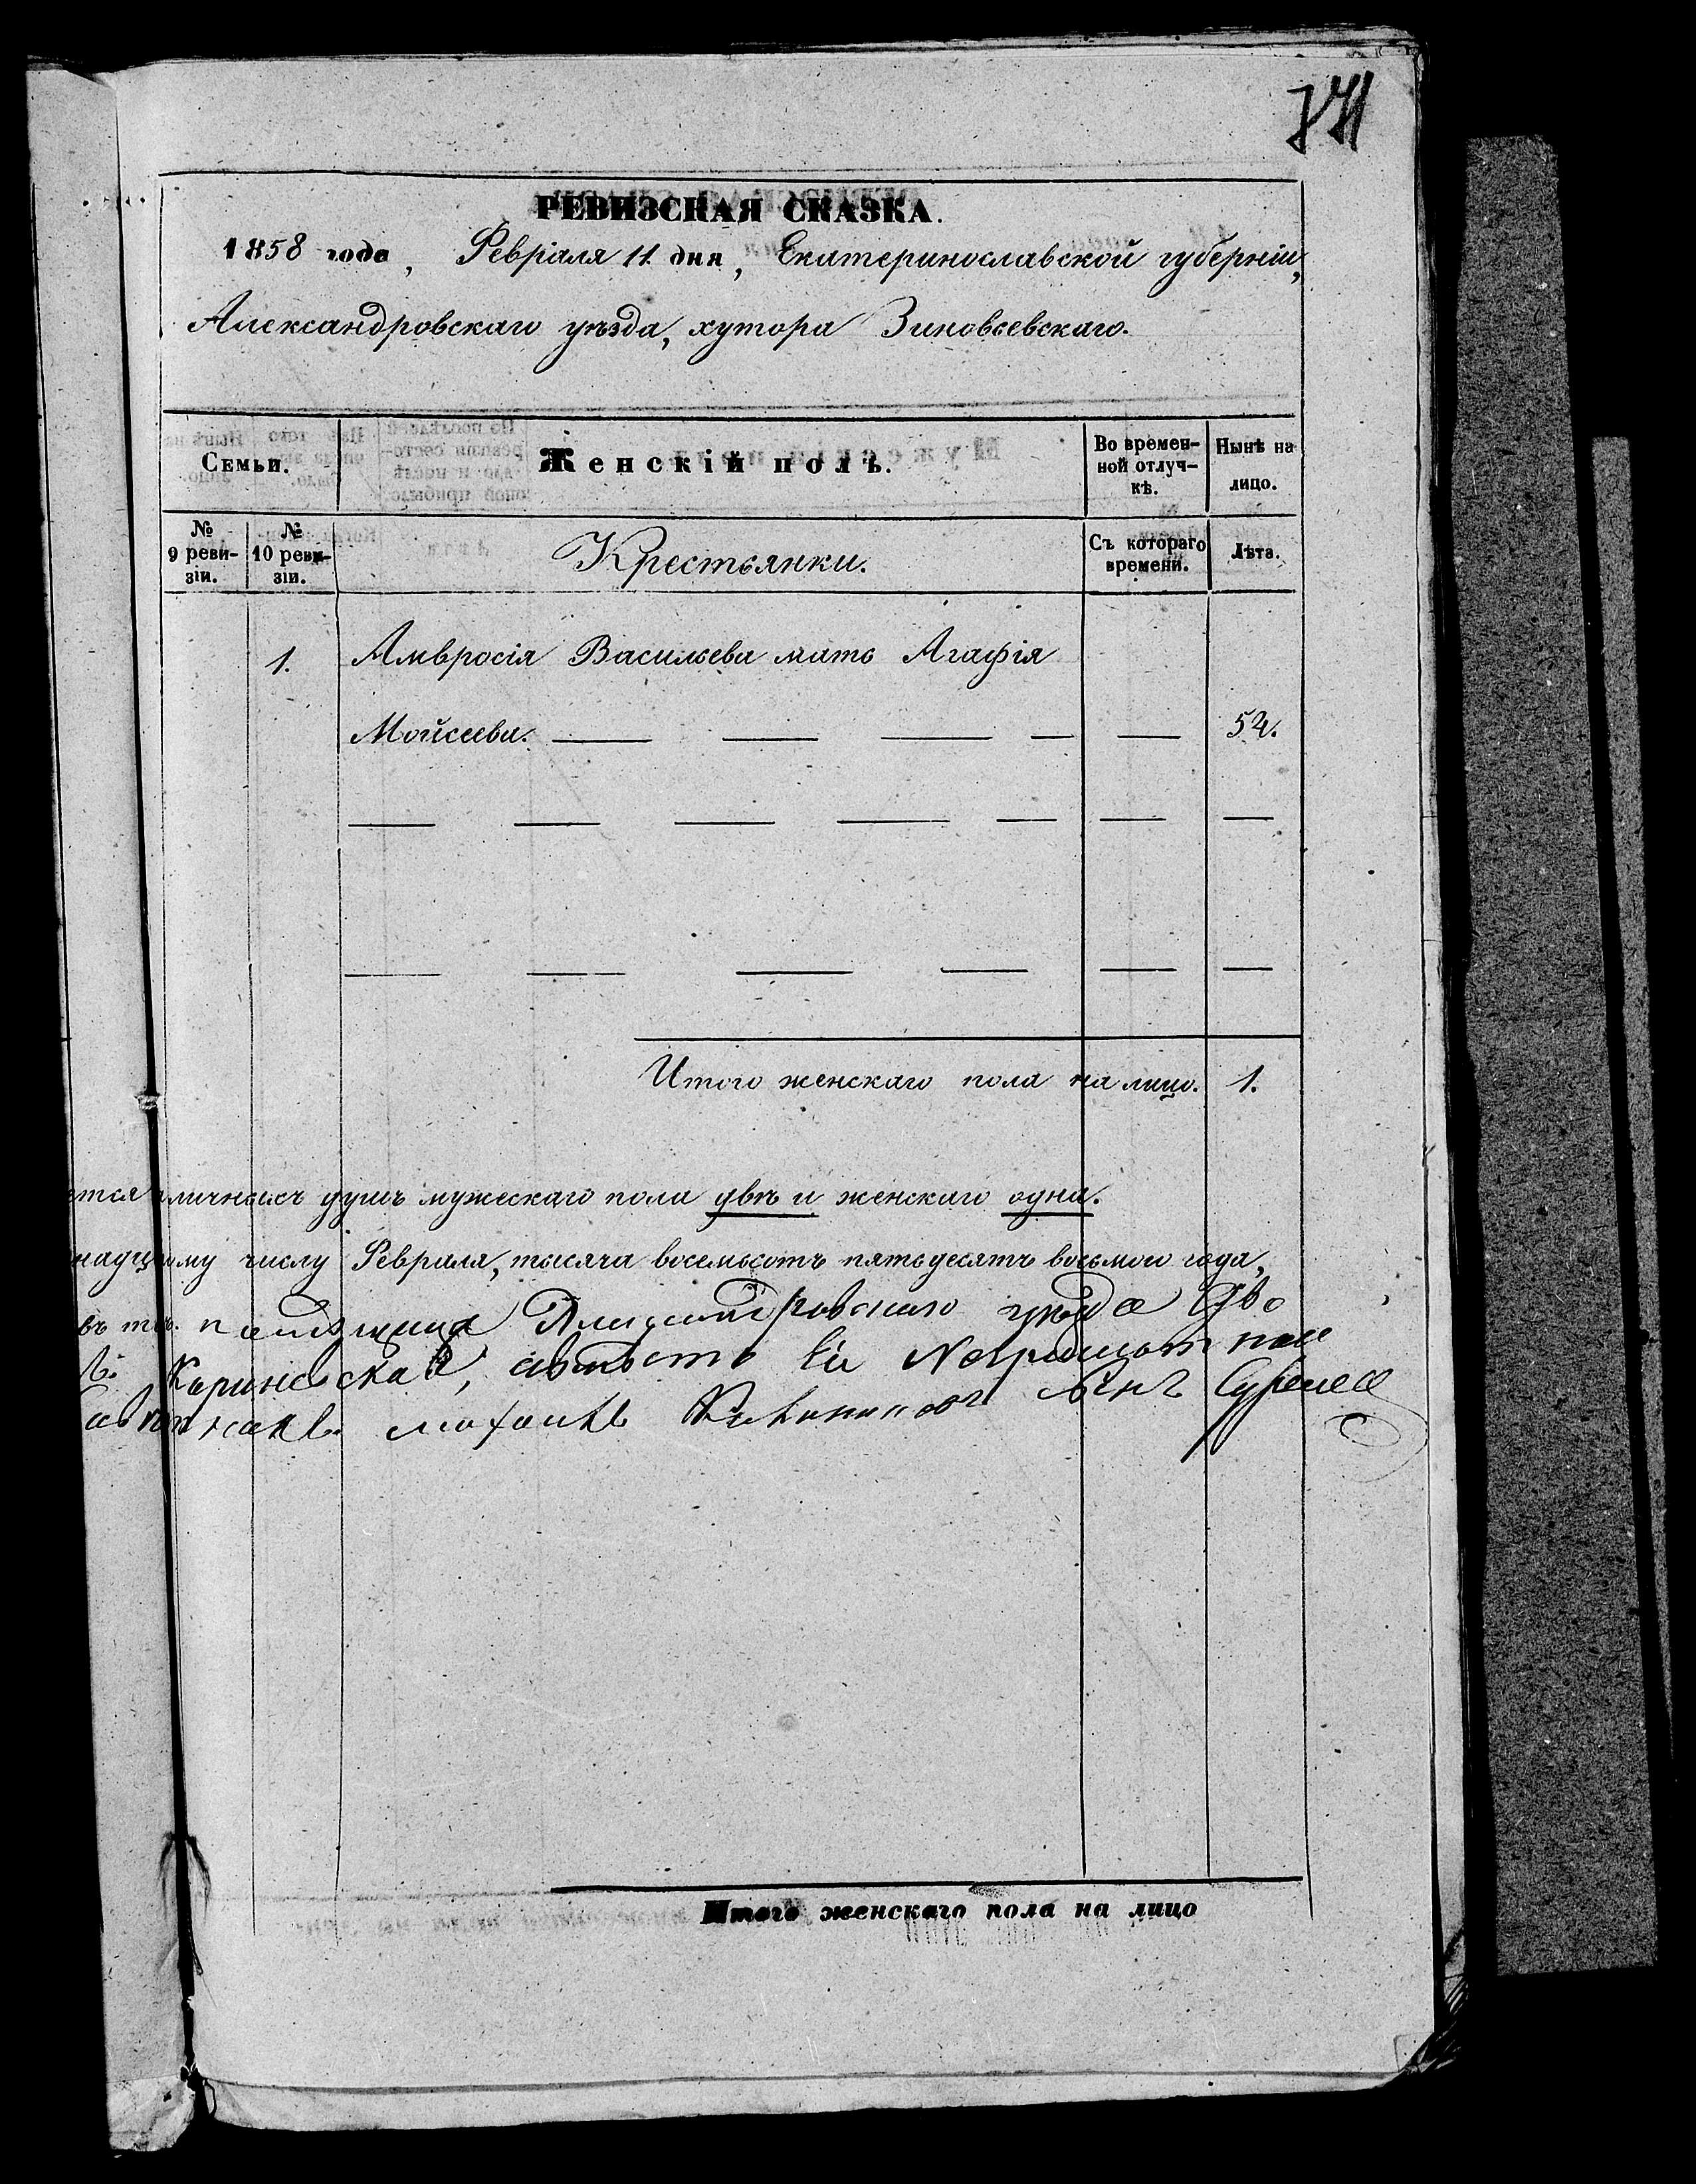 РЕВИЗСКАЯ СКАЗКА.
1858 года, Февраля 11 дня, Екатеринославской губерніи,
Александровскаго уѣзда, хутора Зиновьевскаго.
Семьи.
Женскій полъ.
Во времен-
ной отлуч-
кѣ.
Нынѣ на
лицо.
№
9 реви-
зіи.
№
10 реви-
зіи.
Крестьянки.
Съ котораго
времени.
Лѣта.
1. Амвросія Васильева мать Агафія
Мойсеева. — — — — — 54.
Итого женскаго пола на лицо. 1.
ется личныхъ душъ мужескаго пола двѣ и женскаго одна.
надцатому числу Февраля, тысяча восемьсотъ пятьдесятъ восьмого года,
помѣщица Александровскаго уѣзда
Итого женскаго пола на лицо